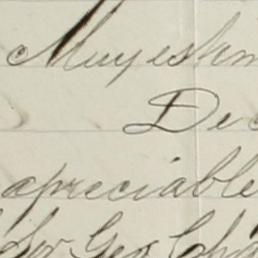 Muy estim
De
apreciable
Sor Geo